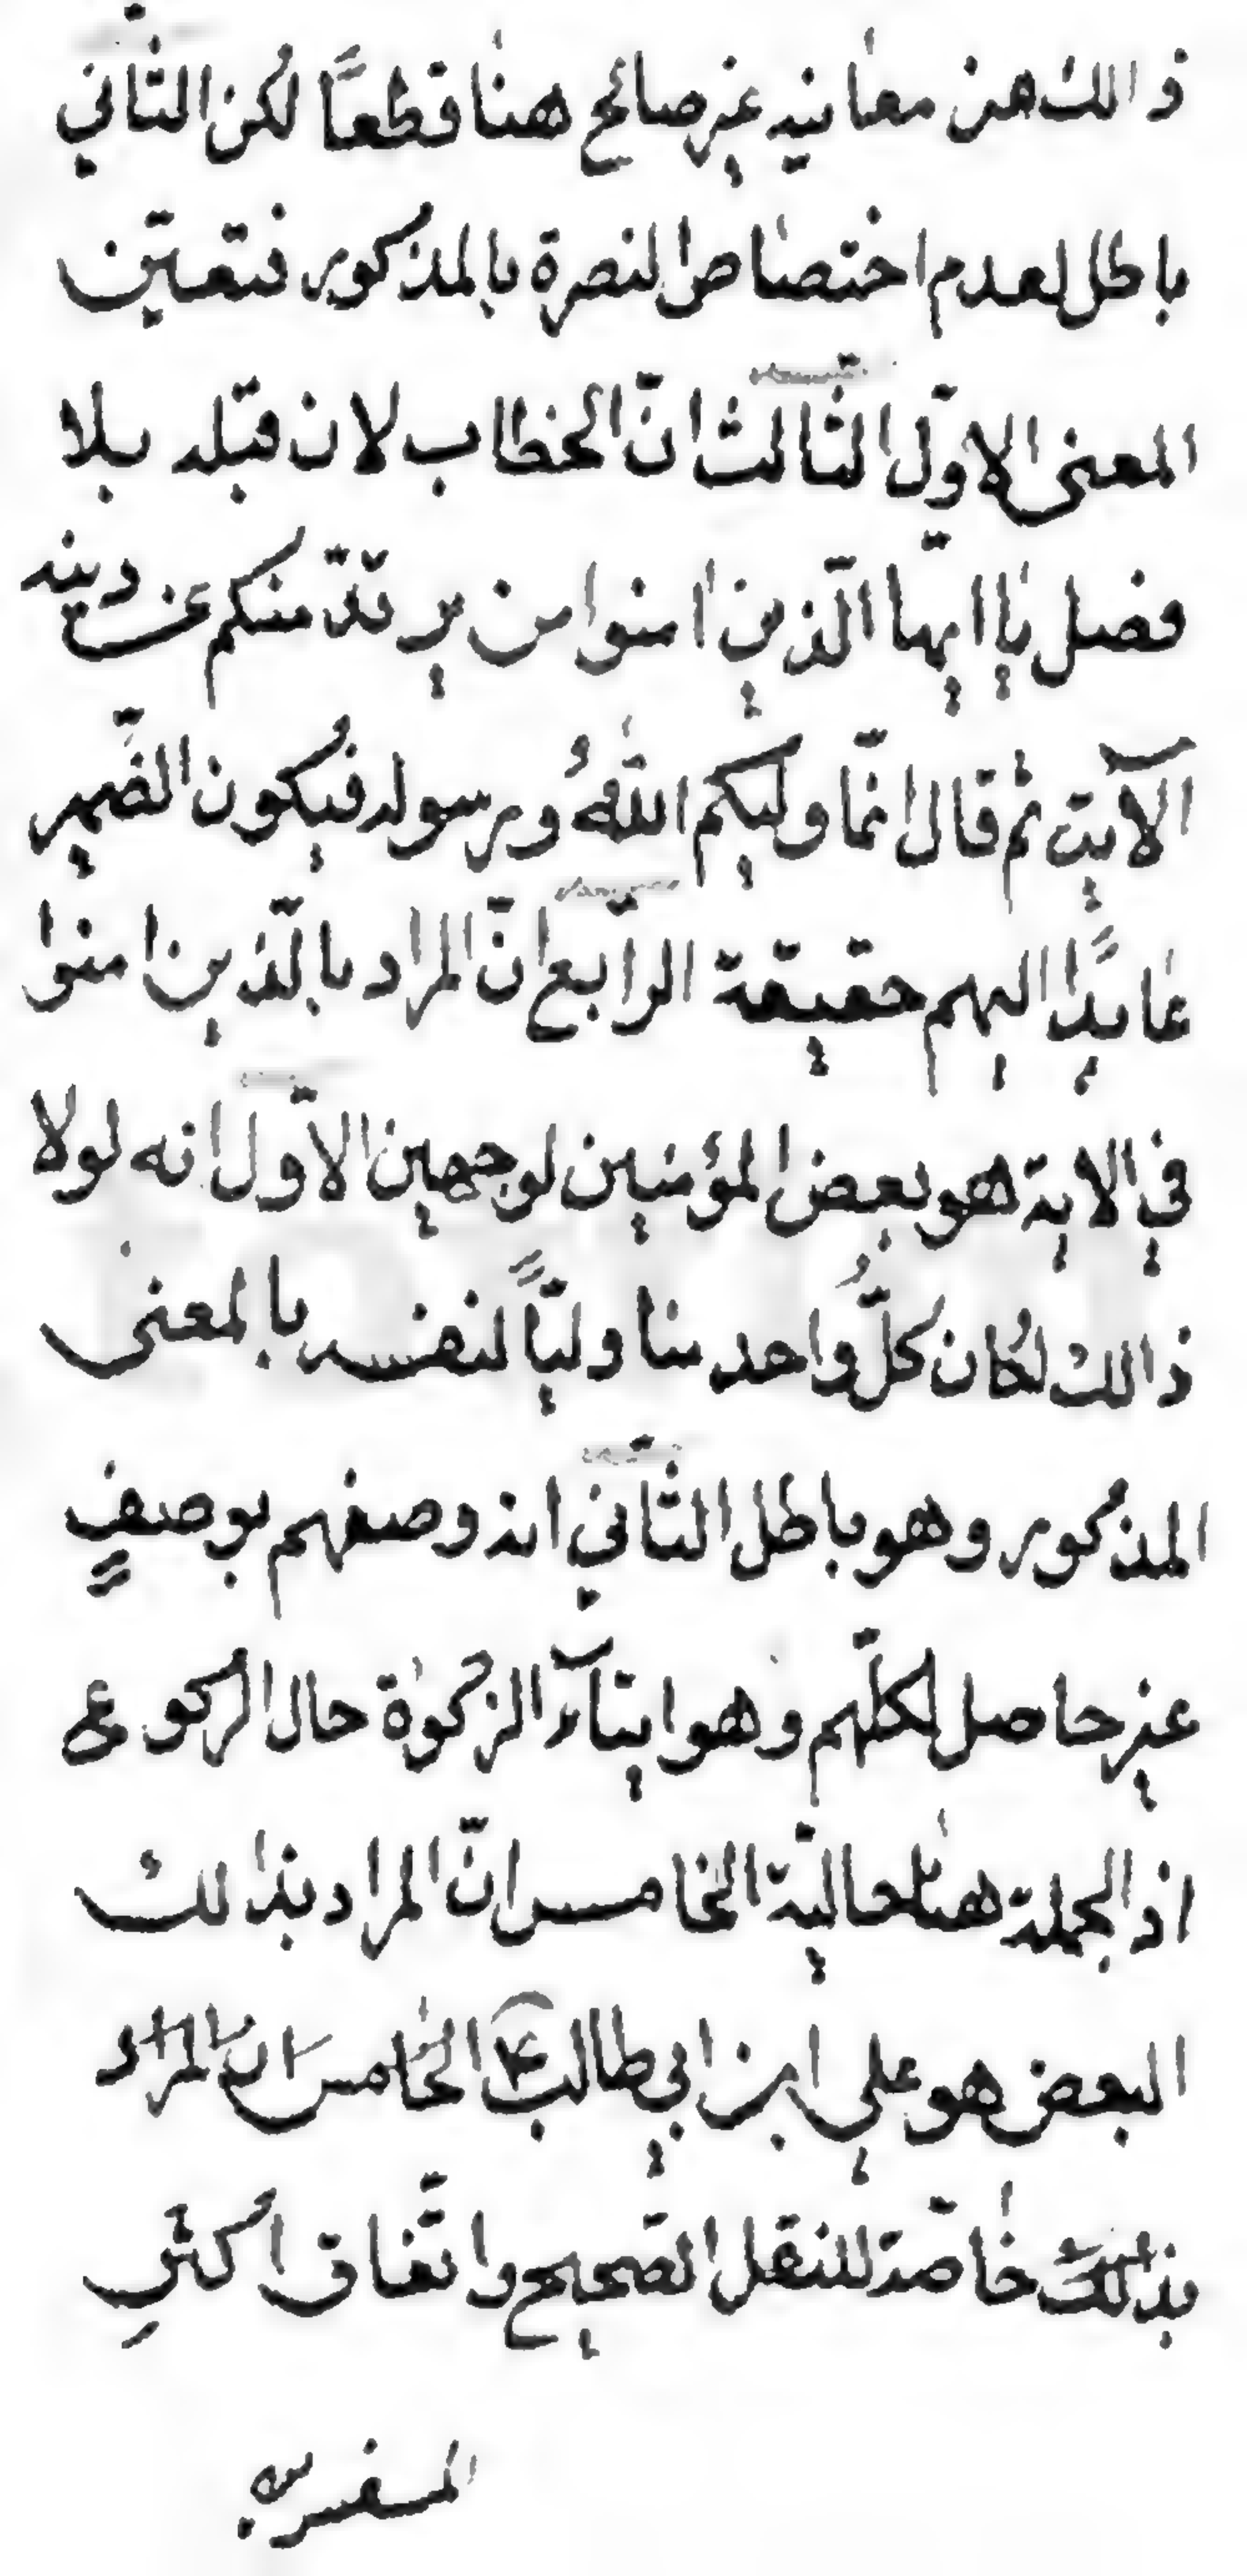 ذالك من معانيه غير صالح هنا قطعًا لكن الثّاني
باطل لعدم اختصاص النصرة بالمذكور فتعيّن
المعنى الاوّل الثالث انّ الخطاب لان قبله بلا
فصل يا ايها الّذين امنوا من يرتدّ منكم عن دينه
الآية ثم قال انّما وليكم اللهُ ورسوله فيكون الضّمير
عايدًا اليهم حقيقة الرّابع انّ المراد بالّذين امنوا
في الاية هو بعض المؤمنين لوجهين الاوّل انه لولا
ذالك لكان كلُّ واحد منا وليًّا لنفسه بالمعنى
المذكور وهو باطل الثّاني انه وصفهم بوصفٍ
غير حاصل لكلّهم وهو ايتآء الزكوة حال الركوع
اذ الجملة هنا حاليّة الخامس انّ المراد بذالك
البعض هو علي ابن ابي طالب ع الخامس ان المراد
بذلك خاصّة للنقل الصّحيح واتّفاق اكثرِ
المفسرين